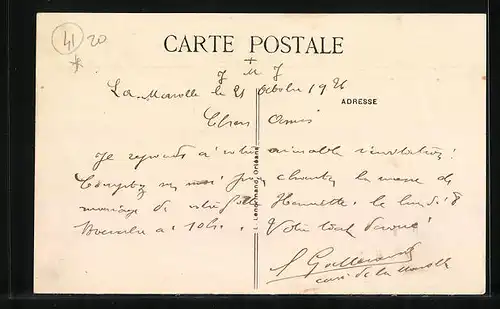 41 20
CARTE POSTALE
+
J M J
La Marolle le 21 octobre 1926
ADRESSE
Chers Amis
Je réponds à votre aimable invitation !
Comptez sur moi pour chanter la messe de
mariage de votre fille Henriette. le lundi 8
Novembre à 10h. Votre tout dévoué
curé de la Marolle
L. Lenormand, Orléans